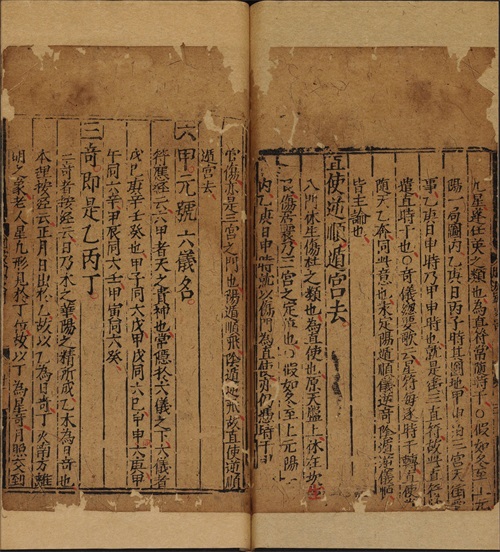 九星蓬任英之類也為直符常隨時干假如冬至上元
陽一局圖丙乙庚日丙子時其圖地甲申泊三宮天衝
事乙庚日申時乃甲申時也就是衝三直符故直符
遣直時干也○奇儀總要歌云星符每逐時干轉直使
隨天乙奔同此意也未定陽遁順儀逆奇陰遁逆儀順
皆主論也
直使逆順遁宮去
八門休生傷杜之類也為直使也原天盤上休在坎
艮傷居震乃三宮之定位也○假如冬至上元陽一
丙乙庚日申時就以傷門為直使
官傷亦是三宮之門也陽遁順飛陰遁逆飛故直使逆順
遁宮去
六甲元號六儀名
符應經云六甲者天之貴神也常隱於六儀之下六儀者
戊己庚辛壬癸也甲子同六戊甲戌同六己甲申六庚甲
午同六辛甲辰同六壬甲寅同六癸
三奇即是乙丙丁
三奇者按經云日乃木之華陽之精所成乙木為日奇也
本理按經云正月日出於乙故以乙為日奇丁火南方離
明之象老人星九形見於丁位故以丁為星奇月照